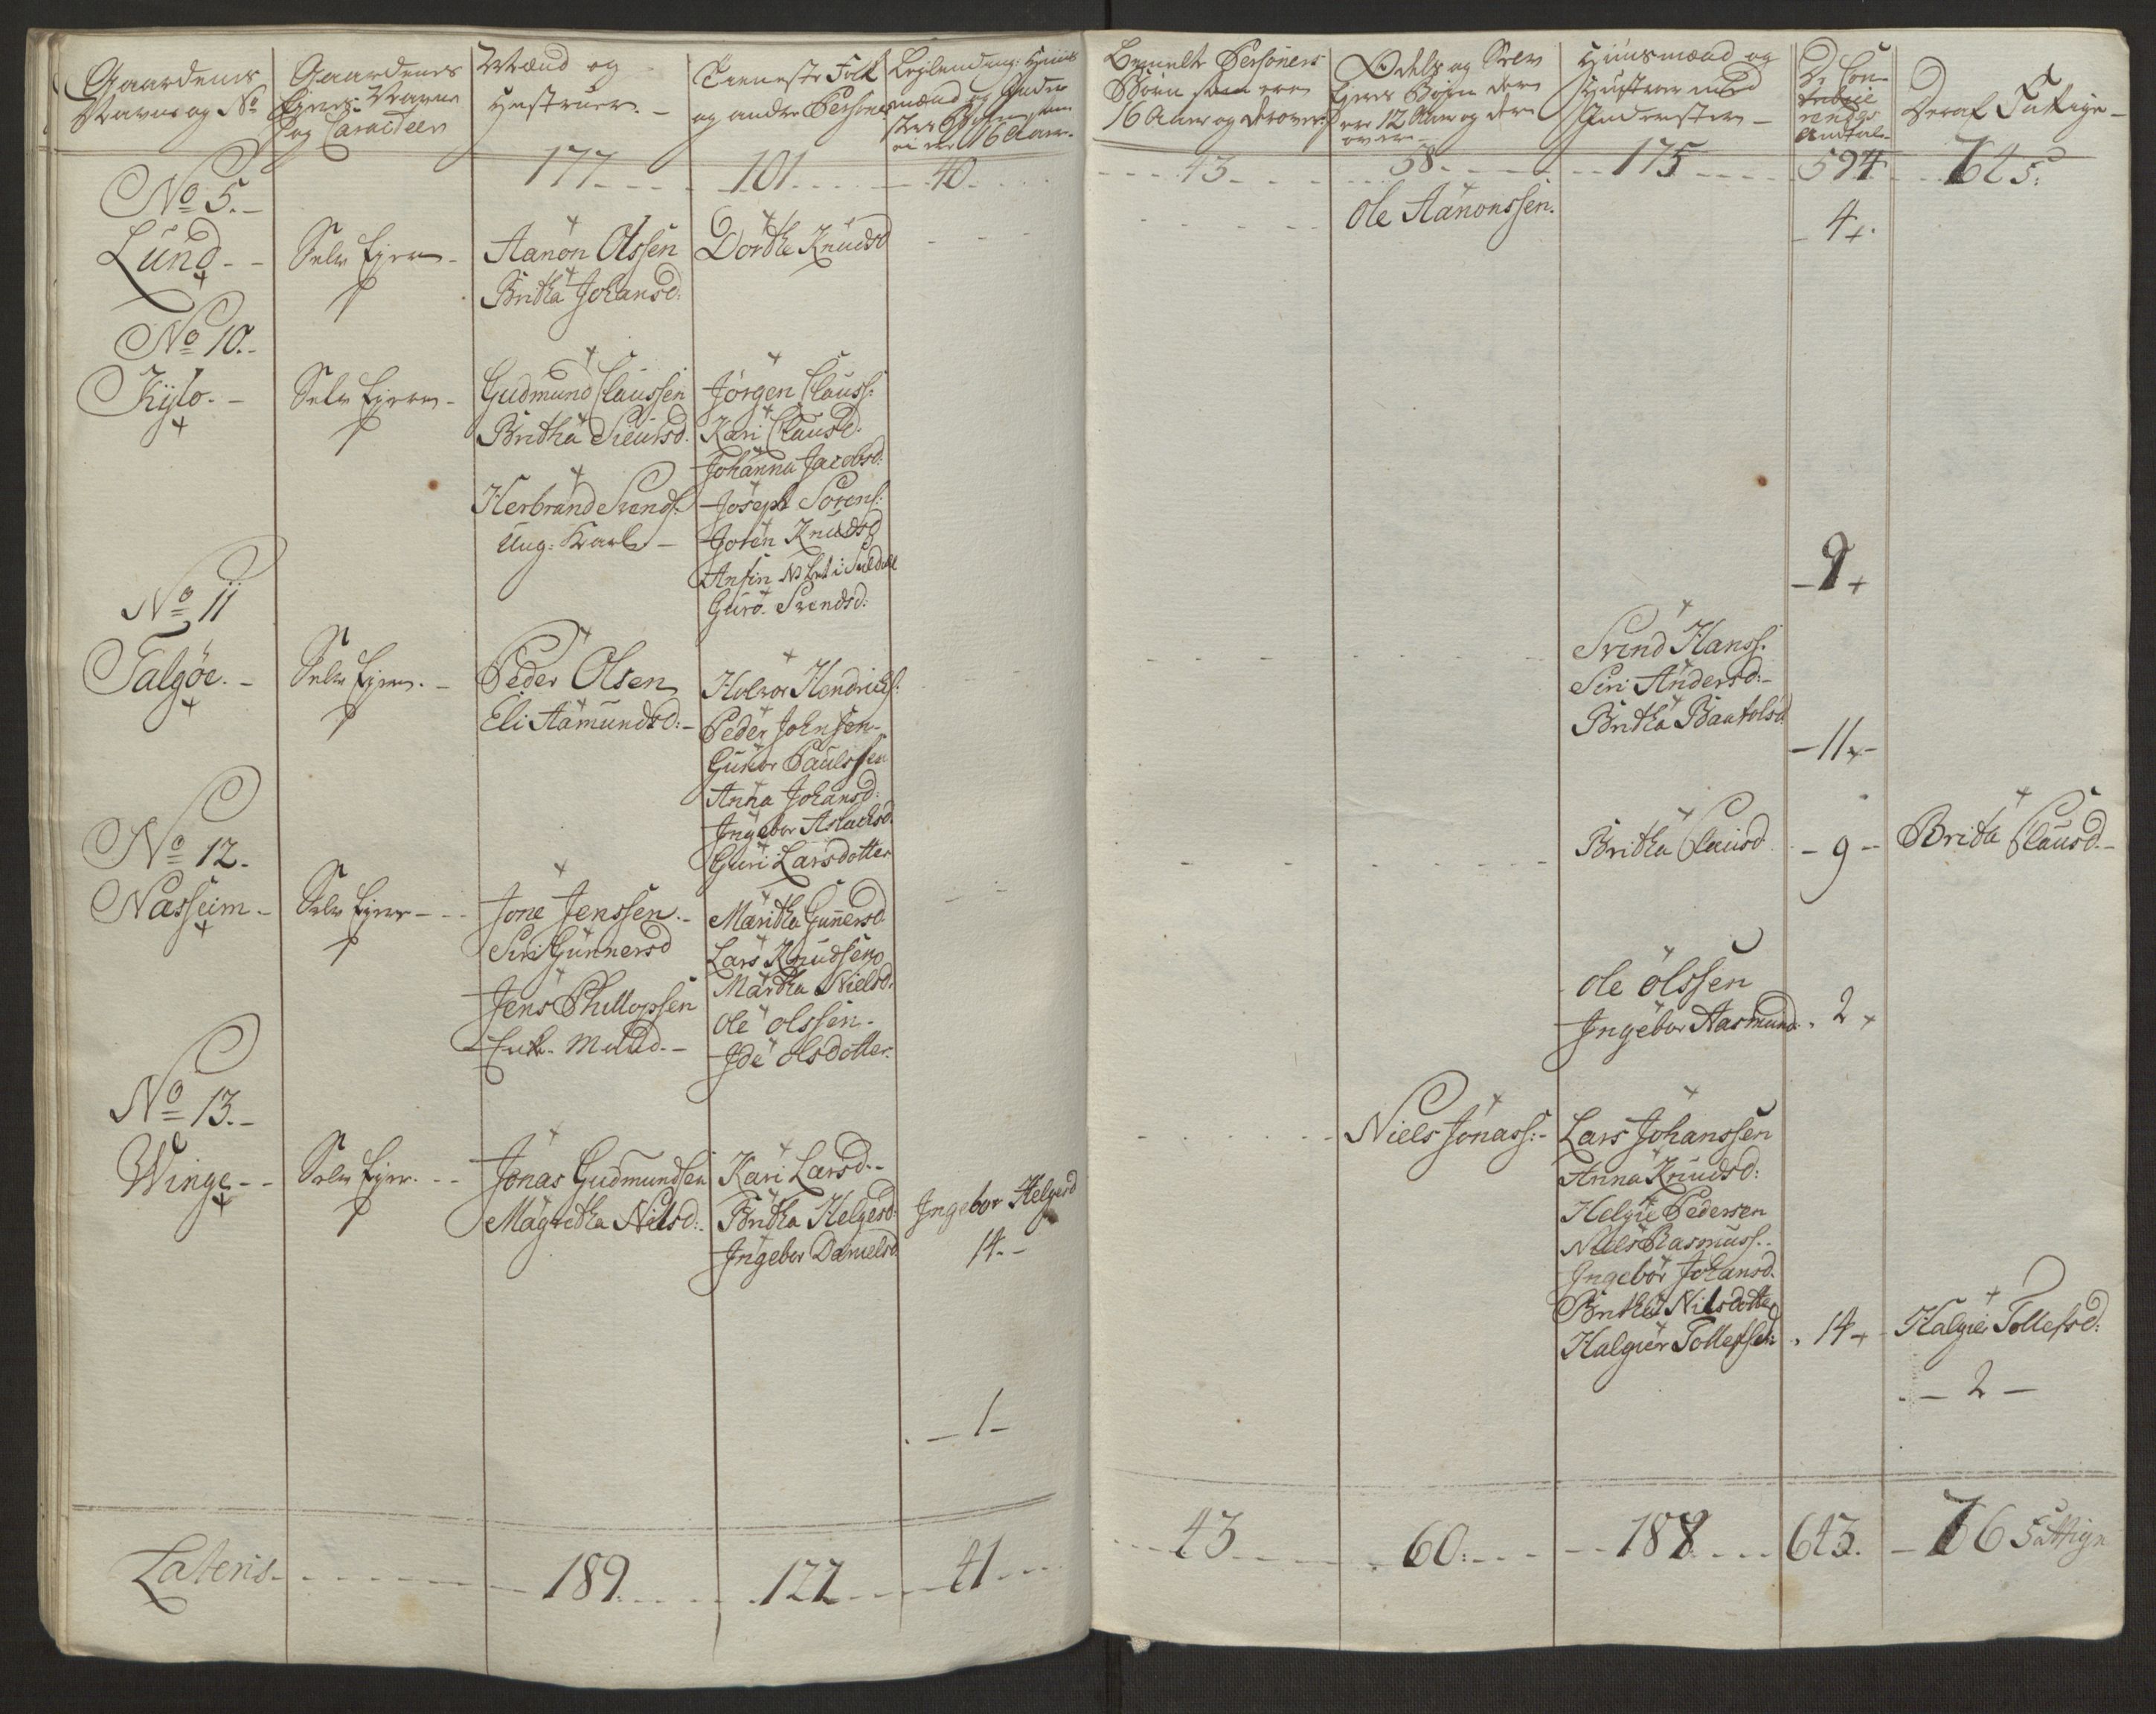 Gaardens
Navne og No
Gaardens
Ejers Navne
og Caracteer
Mænd og
Hustruer.
Tieneste Folk
og andre Persohner
16 Aar.
Bemelte Persohners
Børn som ere
16 Aar og derover
Odels og Selv
Ejeres Børn der
ere 12 Aar og der
over
Huusmænd og
Hustruer med
Inderster
De Con-
tribue
rendes
Antal
Deraf Fattige
177
101
40
43
58
175
594
No 5.
Lund
Selv Ejer
Aanon Olssen
Britha Johansd:
Dorthe Knudsd
Ole Aanonssen.
4
No 10.
Kylo.
Selv Ejere
Gudmund Claussen
Britha Siursd.
Herbrand Svends:
Ung: Karl
Jörgen Clauss:
Kari Clausd:
Johanna Jacobsd:
Joseph Sörens:
Joren Knudsd
Anfin
Guro Svendsd:
9
No 11
Talgöe.
Selv Ejere.
Peder Olsen
Eli Aamundsd:
Holvor Hendrichs:
Peder Johnsen
Gunor Paulssen
Anna Johansd:
Ingebor Aslachsd
Guri Larsdotter
Svend Hanss:
Siri Andersd:
Britha Baartolsd
11
No 12.
Nasheim
Selv Ejer
Jone Jenssen.
Siri Gunnersd
Jens Phillopsen
Enke Mand.
Maritha Gunnersd
Lars Knudsen
Martha Nielsd.
Ole olssen.
Ide olsdotter.
Britha Clausd
9
Brita Clausd.
ole ölssen
Ingebor Aasmund.
2
No 13.
Winge
Selv Ejer.
Jonas Gudmundsen
Magretha Nilsd:
Kari Larsd.
Britha Helgesd:
Ingebor Danielsd
Ingebor Helgesd
14.
Niels Jonass:
Lars Johanssen
Anna Knudsd:
Helgie Pedersen
Niels Rasmuss.
Ingebor Johansd.
Britha Nilsdotter
Halgier Tollefsd:
14
Halgier Tollefsd:
2
1
Lateris
189
122
41
43
60
188
643
76 Fattige